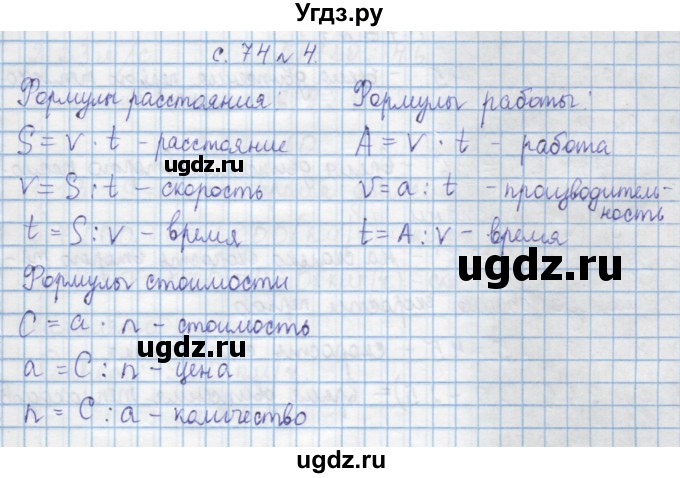 Угдз.ру
с. 74 № 4.
Формулы расстояния:
S = v · t - расстояние
v = S : t - скорость
t = S : v - время
Формулы работы:
A = v · t - работа
v = a : t - производитель-
ность
t = A : v - время
Формулы стоимости
C = a · n - стоимость
a = C : n - цена
n = C : a - количество
ugdz.ru
ugdz.ru
ugdz.ru
ugdz.ru